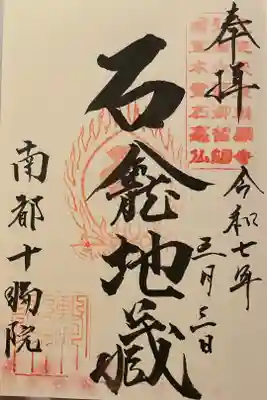 奉拝
令和七年
五月三日
石龕地蔵
南都十輪院